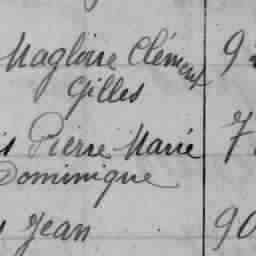 Magloire Clément 9
Gilles
Pierre Marie 7
Dominique
Jean 90